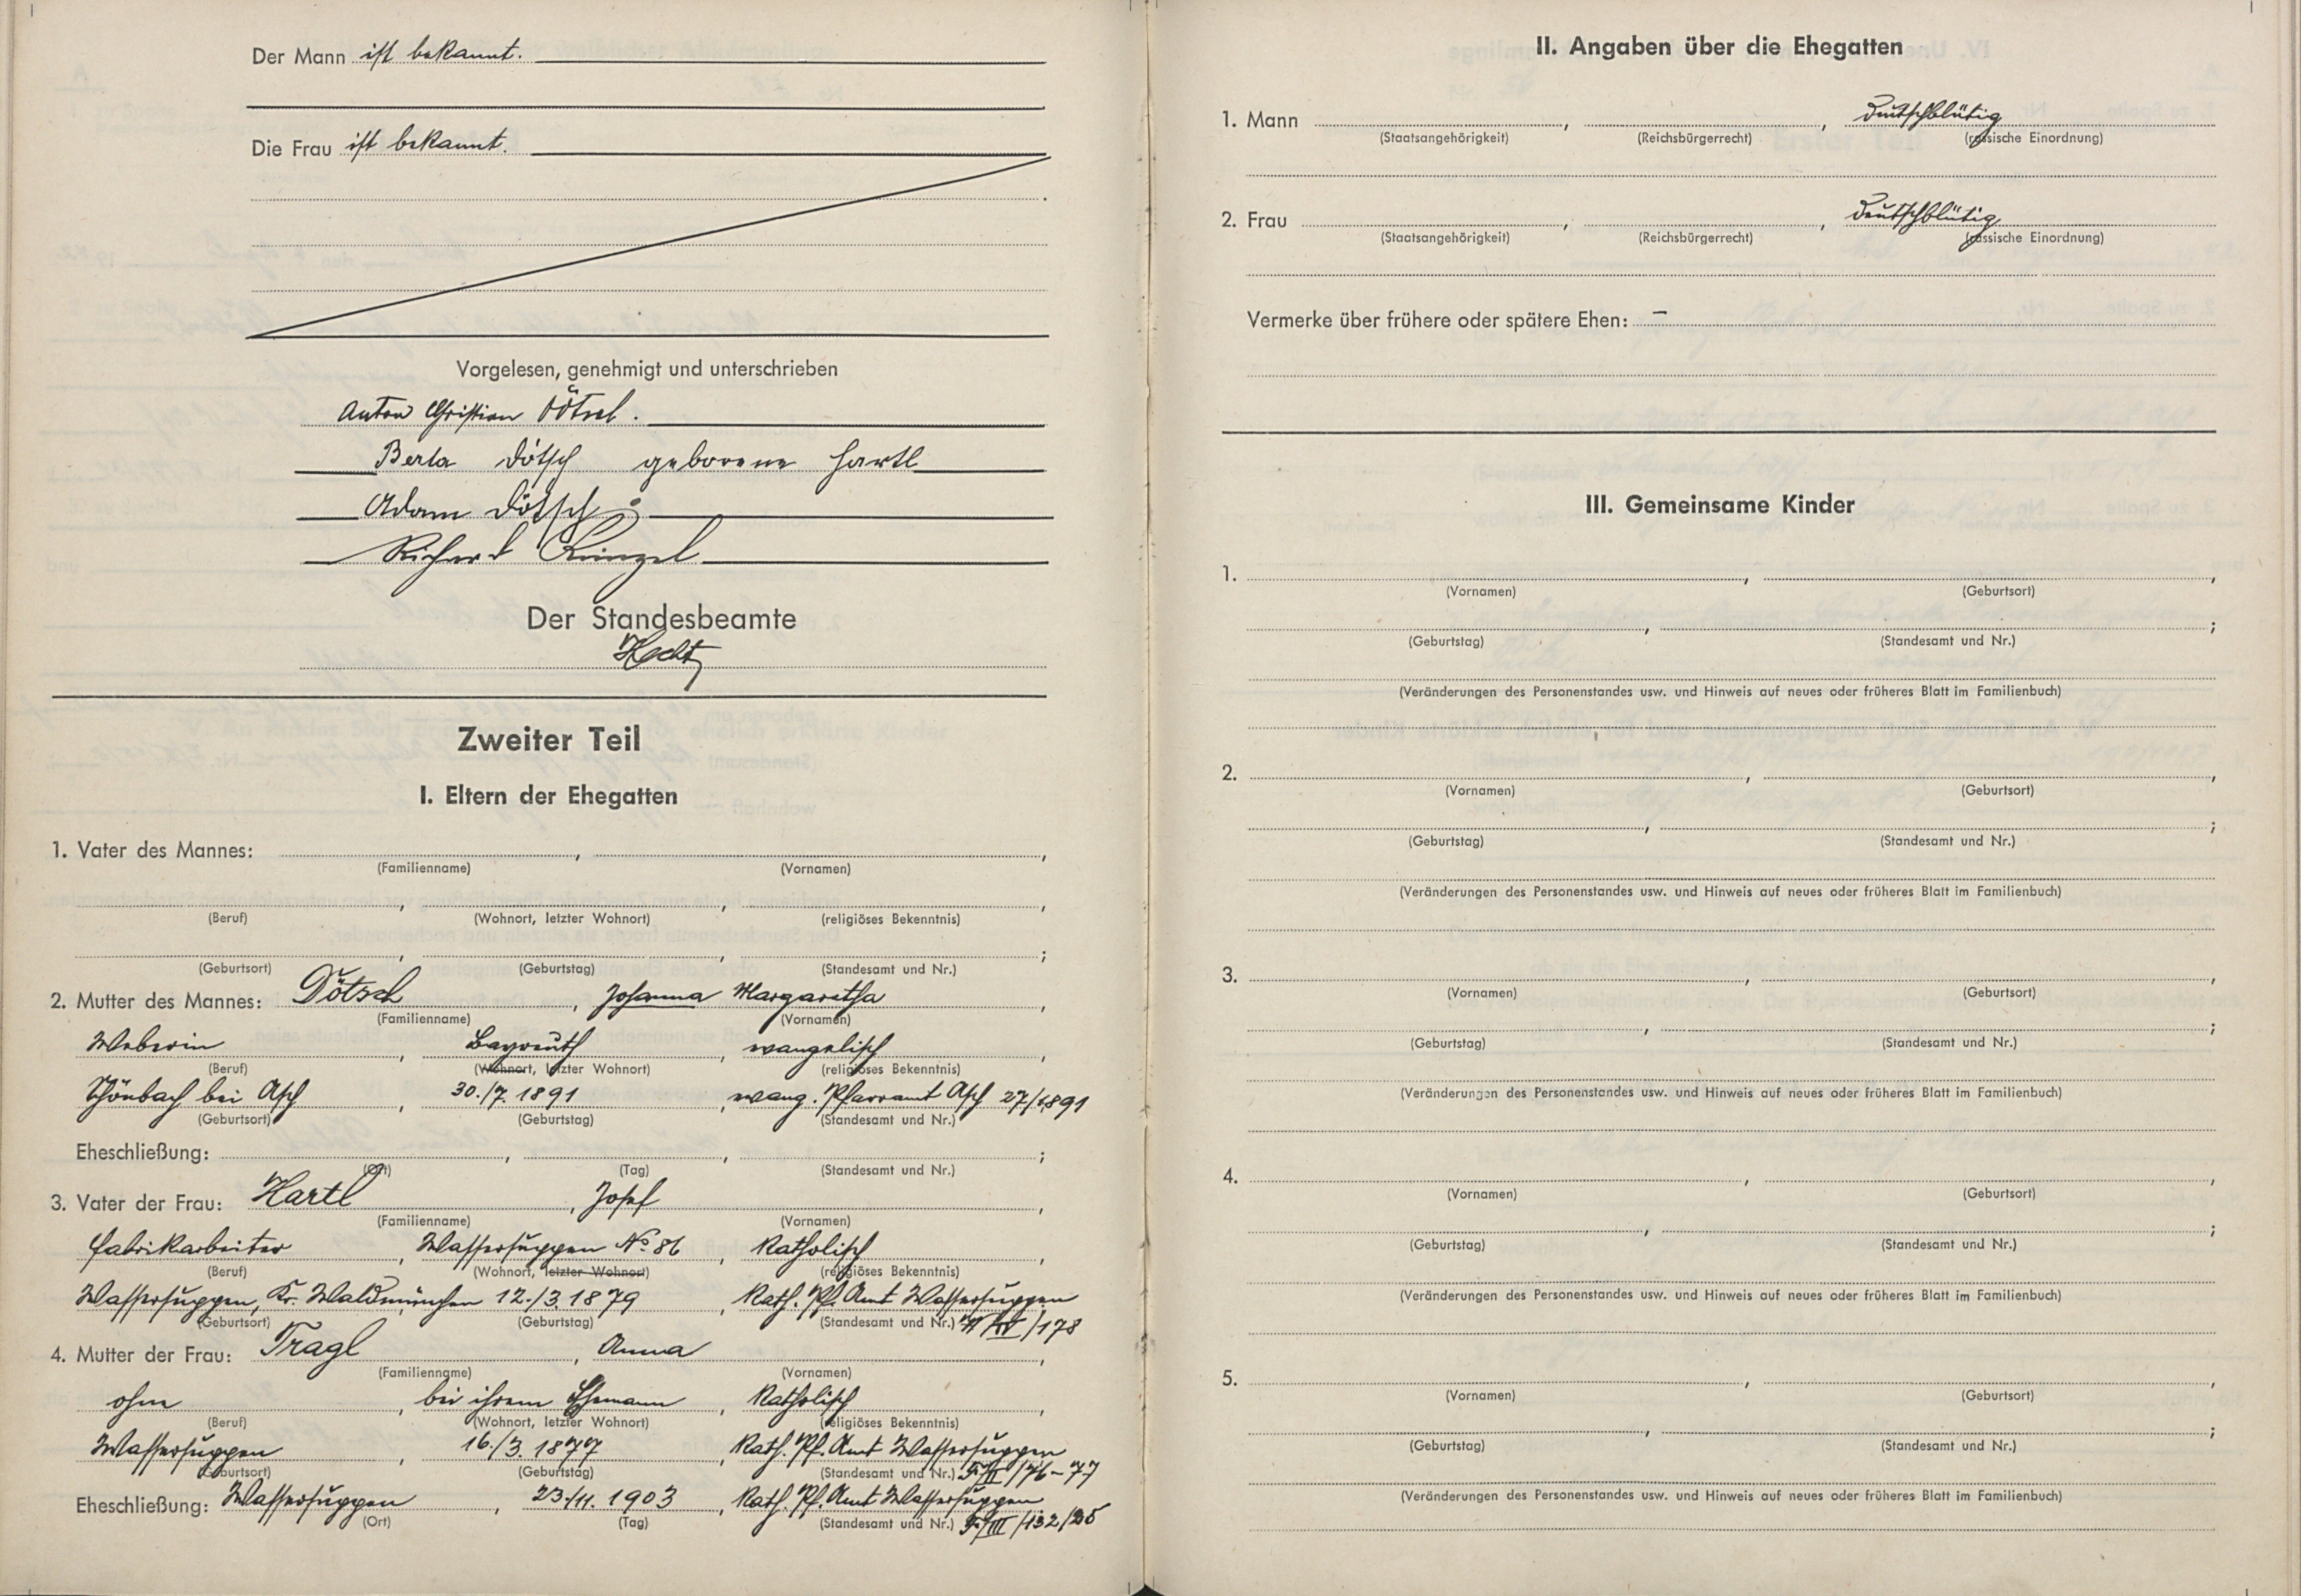 Der Mann ist bekannt.
Die Frau ist bekannt.
Vorgelesen, genehmigt und unterschrieben
Anton Christian Dötsch.
Berta Dötsch geborene Hartl
Adam Dötsch
Richard Künzel
Der Standesbeamte
Hecht
Zweiter Teil
I. Eltern der Ehegatten
1. Vater des Mannes: , ,
(Familienname) (Vornamen)
, , ,
(Beruf) (Wohnort, letzter Wohnort) (religiöses Bekenntnis)
, , ;
(Geburtsort) (Geburtstag) (Standesamt und Nr.)
2. Mutter des Mannes: Dötsch , Johanna Margaretha ,
(Familienname) (Vornamen)
Weberin , Bayreuth , evangelisch ,
(Beruf) (Wohnort, letzter Wohnort) (religiöses Bekenntnis)
Schönbach bei Asch , 30./7. 1891 , evang. Pfarramt Asch 27/1891
(Geburtsort) (Geburtstag) (Standesamt und Nr.)
Eheschließung: , , ;
(Ort) (Tag) (Standesamt und Nr.)
3. Vater der Frau: Hartl , Josef ,
(Familienname) (Vornamen)
Fabrikarbeiter , Wassersuppen No. 86 , katholisch ,
(Beruf) (Wohnort, letzter Wohnort) (religiöses Bekenntnis)
Wassersuppen, Kr. Waldmünchen 12./3. 1879 , Kath. Pf. Amt Wassersuppen
(Geburtsort) (Geburtstag) (Standesamt und Nr.) /178
4. Mutter der Frau: Tragl , Anna ,
(Familienname) (Vornamen)
ohne , bei ihrem Ehemann , katholisch ,
(Beruf) (Wohnort, letzter Wohnort) (religiöses Bekenntnis)
Wassersuppen , 16./3. 1877 , Kath. Pf. Amt Wassersuppen
(Geburtsort) (Geburtstag) (Standesamt und Nr.) /76-77
Eheschließung: Wassersuppen , 23./11. 1903 , Kath. Pf. Amt Wassersuppen
(Ort) (Tag) (Standesamt und Nr.) III/132/25
II. Angaben über die Ehegatten
1. Mann , , deutschblütig
(Staatsangehörigkeit) (Reichsbürgerrecht) (rassische Einordnung)
2. Frau , , deutschblütig
(Staatsangehörigkeit) (Reichsbürgerrecht) (rassische Einordnung)
Vermerke über frühere oder spätere Ehen: –
III. Gemeinsame Kinder
1. , ,
(Vornamen) (Geburtsort)
, ;
(Geburtstag) (Standesamt und Nr.)
(Veränderungen des Personenstandes usw. und Hinweis auf neues oder früheres Blatt im Familienbuch)
2. , ,
(Vornamen) (Geburtsort)
, ;
(Geburtstag) (Standesamt und Nr.)
(Veränderungen des Personenstandes usw. und Hinweis auf neues oder früheres Blatt im Familienbuch)
3. , ,
(Vornamen) (Geburtsort)
, ;
(Geburtstag) (Standesamt und Nr.)
(Veränderungen des Personenstandes usw. und Hinweis auf neues oder früheres Blatt im Familienbuch)
4. , ,
(Vornamen) (Geburtsort)
, ;
(Geburtstag) (Standesamt und Nr.)
(Veränderungen des Personenstandes usw. und Hinweis auf neues oder früheres Blatt im Familienbuch)
5. , ,
(Vornamen) (Geburtsort)
, ;
(Geburtstag) (Standesamt und Nr.)
(Veränderungen des Personenstandes usw. und Hinweis auf neues oder früheres Blatt im Familienbuch)